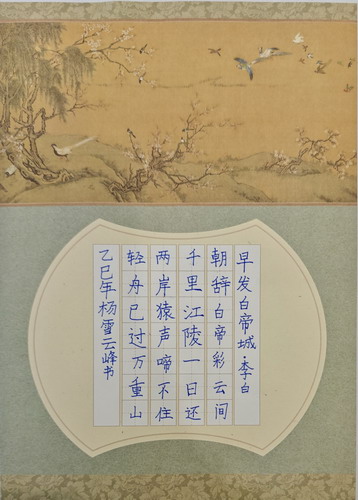 早发白帝城·李白
朝辞白帝彩云间
千里江陵一日还
两岸猿声啼不住
轻舟已过万重山
乙巳年杨雪云峰书